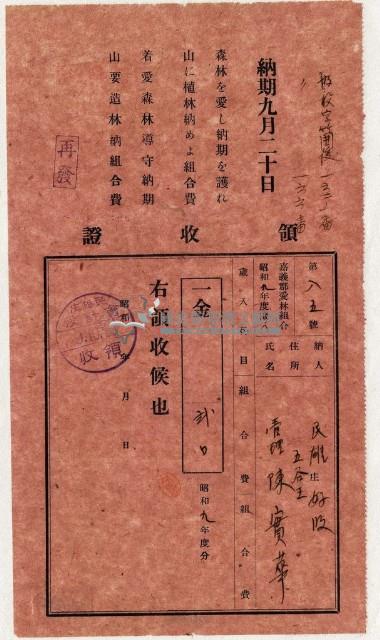 納期九月二十日
森林を愛し納期を護れ
山に植林納めよ組合費
若愛森林導守納期
山要造林納組合費
再發
領收證
第八五號
納人
住所
氏名
民雄庄好收
五谷王
管理陳實華
嘉義郡愛林組合
昭和九年度歲入
歲入科目組合費組合費
一金
昭和九年度分
右領收候也
昭和 年 月 日
領收